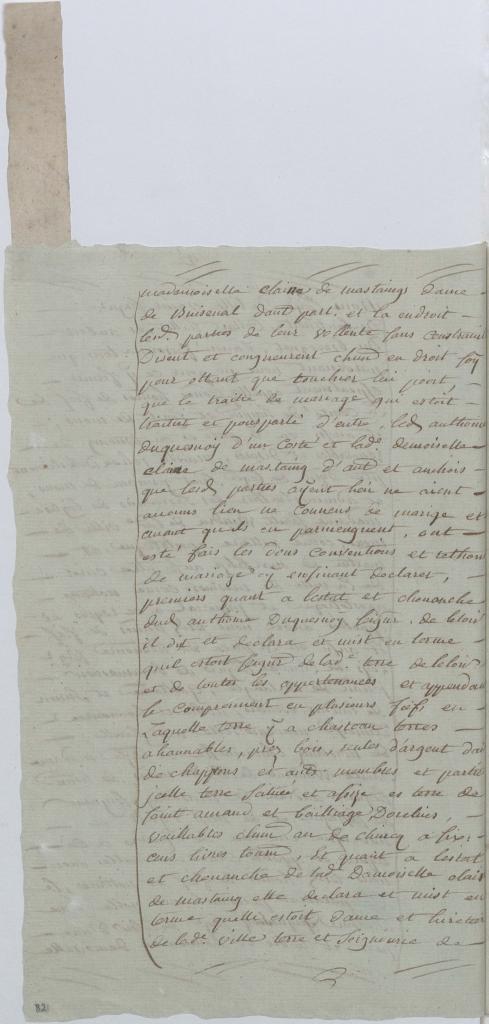 mademoiselle claire de mastaing Dame
de Bruisenal daut part. et la endroit
lesd. parties de leur vollente sans constrainte
Disent et congneurent chun en droit soy
pour ottant que touchier lui poeut,
que le traitié de mariage qui estoit
traitiet et pourparlé d'entre led. anthoine
duquesnoy d'un costé et lade. demoiselle
claire de mastaing d'aut et anchois
que lesd parties ayent lien ne aient
aucuns lien ne convens de mariage et
avant qu'ils en parviengnent, ont
esté fais les dons conventions et
de mariage cy ensuivant declarez,
premiers quant a lestat et chevanche
dud anthoine Duquesnoy sigur. de
il dit et declara et mist en terme
quil estoit sigur de lade. terre de
et de toutes les appartenances et appendances
le comprennent en plusieurs fiefs en
laquelle terre y a chasteau terres
ahannables, prez bois, rentes d'argent d'
de chappons et auts. membres et parties
jcelle terre scituée et assize es terre de
saint amand et bailliage
vaillables chun an de chincq a six
cens livres tourn. Et quant a lestat
et chevanche de lad. Damoiselle claire
de mastaing elle declara et mist en
terme quelle estoit dame et
de lade. ville terre et seigneurie de
82